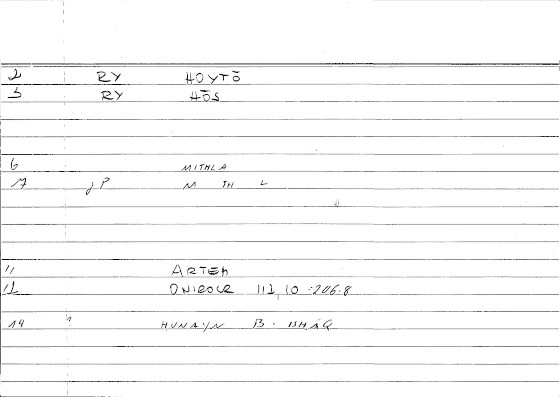 2 RY HOYTŌ
3 RY HŌS
6 MITHLA
17 JP M TH L
11 ARTEM
12 ONIROCR 111,10 =206.8
14 ? HUNAYN B. ISHĀQ